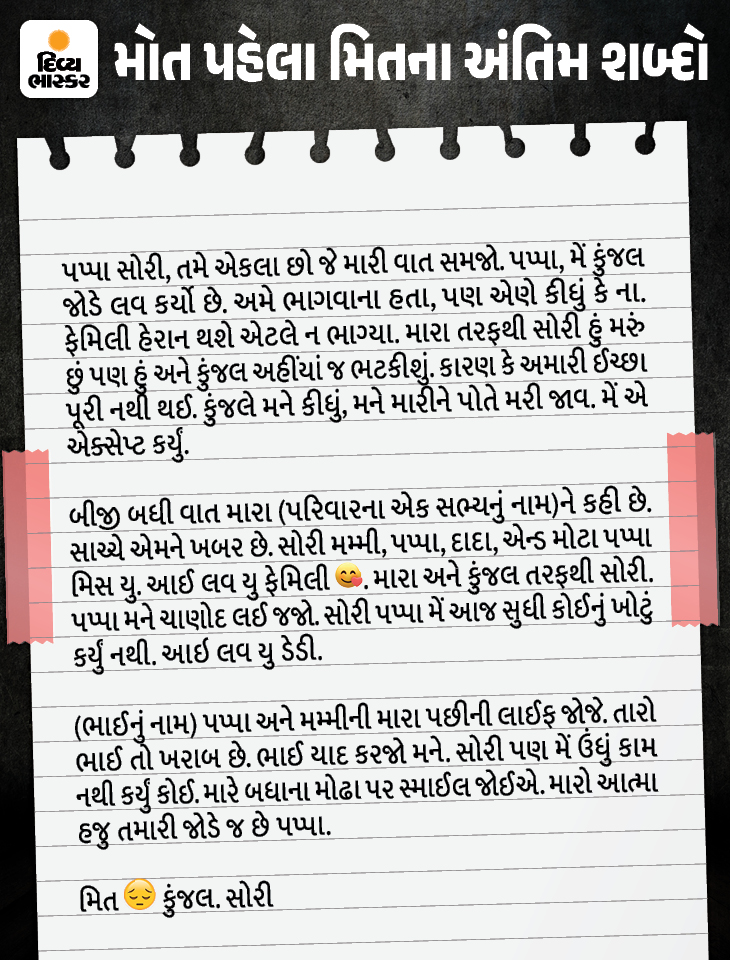 દિવ્ય
ભાસ્કર
મોત પહેલા મિતના અંતિમ શબ્દો
પપ્પા સોરી, તમે એકલા છો જે મારી વાત સમજો. પપ્પા, મેં કુંજલ
જોડે લવ કર્યો છે. અમે ભાગવાના હતા, પણ એણે કીધું કે ના.
ફેમિલી હેરાન થશે એટલે ન ભાગ્યા. મારા તરફથી સોરી હું મરું
છું પણ હું અને કુંજલ અહીંયાં જ ભટકીશું. કારણ કે અમારી ઈચ્છા
પૂરી નથી થઈ. કુંજલે મને કીધું, મને મારીને પોતે મરી જાવ. મેં એ
એક્સેપ્ટ કર્યું.
બીજી બધી વાત મારા (પરિવારના એક સભ્યનું નામ)ને કહી છે.
સાચ્ચે એમને ખબર છે. સોરી મમ્મી, પપ્પા, દાદા, એન્ડ મોટા પપ્પા
મિસ યુ. આઈ લવ યુ ફેમિલી 😋. મારા અને કુંજલ તરફથી સોરી.
પપ્પા મને ચાણોદ લઈ જજો. સોરી પપ્પા મેં આજ સુધી કોઈનું ખોટું
કર્યું નથી. આઇ લવ યુ ડેડી.
(ભાઈનું નામ) પપ્પા અને મમ્મીની મારા પછીની લાઈફ જોજે. તારો
ભાઈ તો ખરાબ છે. ભાઈ યાદ કરજો મને. સોરી પણ મેં ઉંધું કામ
નથી કર્યું કોઈ. મારે બધાના મોઢા પર સ્માઈલ જોઈએ. મારો આત્મા
હજુ તમારી જોડે જ છે પપ્પા.
મિત 😔 કુંજલ. સોરી